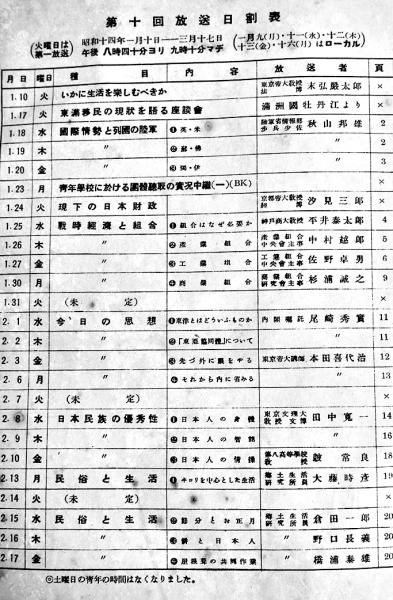 第十回放送日割表
(火曜日は第一放送)
昭和十四年一月十日——三月十七日
午後八時四十分ヨリ九時十分マデ
(一月九(月)・十一(水)・十二(木)
十三(金)・十六(月)はローカル)
月日 曜日 放送内容 放送者 頁
1.10 火 いかに生活を楽しむべきか 東京帝大教授 法博 末弘嚴太郎 ×
1.17 火 東滿移民の現狀を語る座談會 滿洲國牡丹江より ×
1.18 水 國際情勢と列國の陸軍 ❶英・米 陸軍省情報部 步兵少佐 秋山邦雄 2
1.19 木 〃 ❷蘇・佛 〃 2
1.20 金 〃 ❸獨・伊 〃 3
1.23 月 靑年學校に於ける團體聽取の實況中繼(一)(BK) ×
1.24 火 現下の日本財政 京都帝大教授 汐見三郎 ×
1.25 水 戰時經濟と組合 ❶組合はなぜ必要か 神戸商大教授 平井泰太郎 4
1.26 木 〃 ❷產業組合 產業組合中央會主事 中村 郎 5
1.27 金 〃 ❸工業組合 工業組合中央會主事 佐野卓男 6
1.30 月 〃 ❹商業組合 商業組合研究會主事 杉浦誠之 9
1.31 火 (未定) ×
2.1 水 今日の思想 ❶東洋とはどういふものか 內閣囑託 尾崎秀實 11
2.2 木 〃 ❷「東亞協同體」について 〃 11
2.3 金 〃 ❸先づ外に眼をやる 東京帝大講師 本田喜代治 12
2.6 月 〃 ❹それから内に省みる 〃 13
2.7 火 (未定) ×
2.8 水 日本民族の優秀性 ❶日本人の身體 東京文理大教授 文博 田中寬一 14
2.9 木 〃 ❷日本人の智能 〃 16
2.10 金 〃 ❸日本人の情操 第八高等學校教授 常良 18
2.13 月 民俗と生活 ❶ヰロリを中心とした生活 鄕土生活研究所員 大藤時彥 19
2.14 火 (未定) ×
2.15 水 民俗と生活 ❷節分とお正月 鄕土生活研究所員 倉田一郎 20
2.16 木 〃 ❸餅と日本人 〃 野口長義 20
2.17 金 〃 ❹屋根葺の共同作業 〃 橋浦泰雄 20
◎土曜日の靑年の時間はなくなりました。